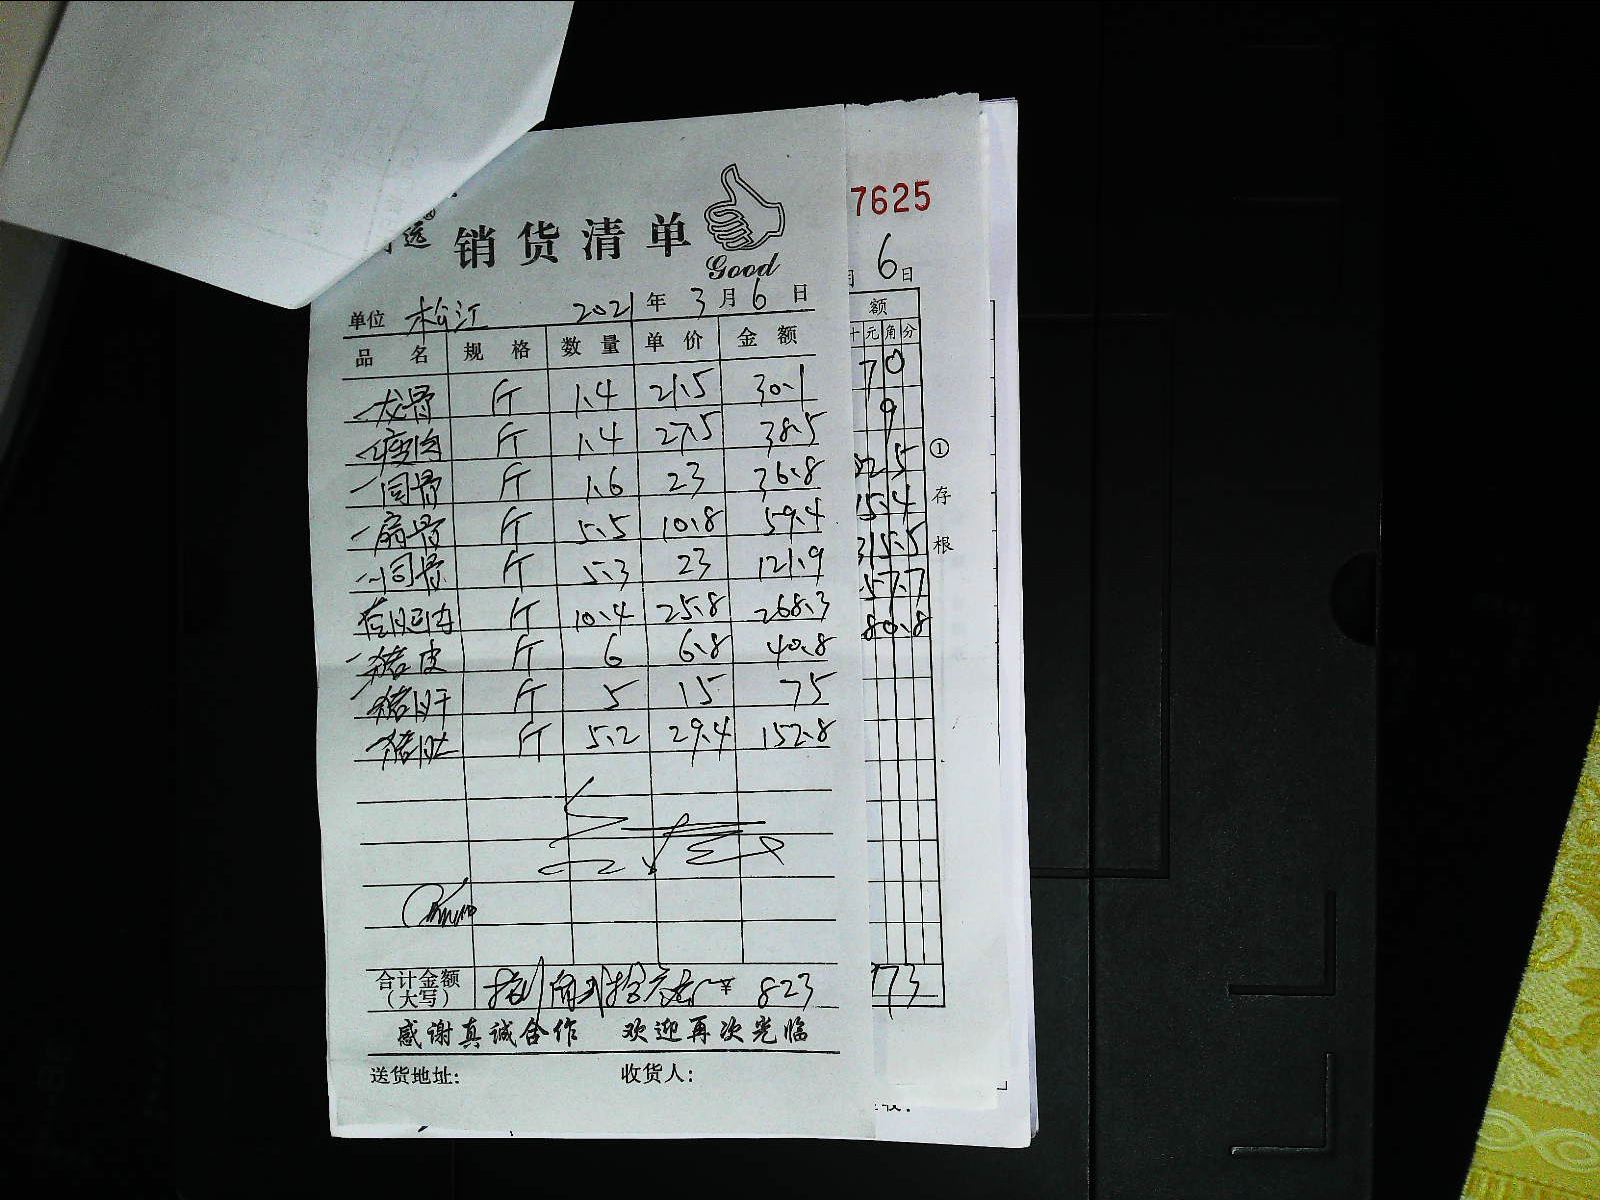 远 销货清单
Good
单位 松江 2021年3月6日
品名 规格 数量 单价 金额
龙骨 斤 1.4 21.5 30.1
瘦肉 斤 1.4 27.5 38.5
筒骨 斤 1.6 23 36.8
扇骨 斤 5.5 10.8 59.4
筒骨 斤 5.3 23 121.9
斤 10.4 25.8 268.3
猪皮 斤 6 6.8 40.8
猪肝 斤 5 15 75
猪肚 斤 5.2 29.4 152.8
合计金额（大写） 捌佰贰拾叁元 ¥ 823
感谢真诚合作 欢迎再次光临
送货地址： 收货人：
7625
月 6日
额
十元角分
70
9
5
15.4
315.5
57.7
80.8
773
①存根